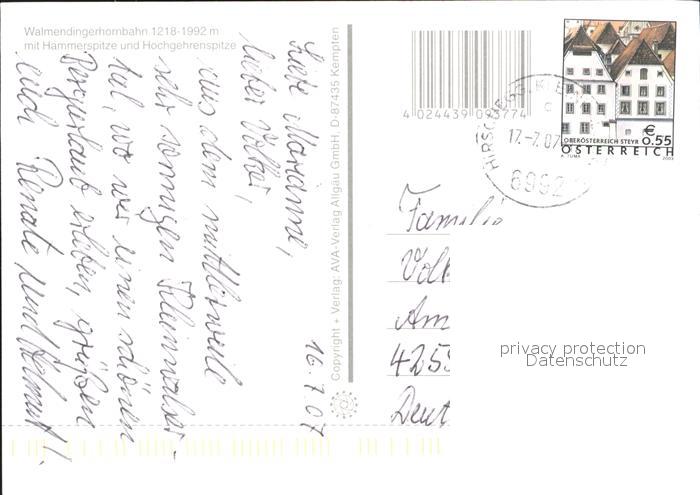 Walmendingerhornbahn 1218-1992 m
mit Hammerspitze und Hochgehrenspitze
16.7.07
Liebe Marianne,
lieber Volker,
aus dem mittlerweile
sehr sonnigen Kleinwalser-
tal, wo wir einen schönen
Bergurlaub erleben, grüßen
euch Renate und Helmut!
Copyright + Verlag: AVA-Verlag Allgäu GmbH, D-87435 Kempten
4 024439 093774
HIRSCHEGG, KLE
17.-7.07
6992
OBERÖSTERREICH STEYR
€ 0.55
ÖSTERREICH
A. TUMA 2003
Familie
Volk
Am
425
Deut
privacy protection
Datenschutz